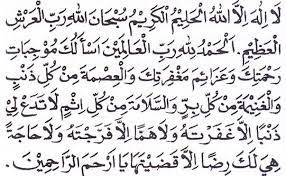 لَا إِلٰهَ إِلَّا اللهُ الْحَلِيْمُ الْكَرِيْمُ سُبْحَانَ اللهِ رَبِّ الْعَرْشِ
الْعَظِيْمِ. اَلْحَمْدُ لِلهِ رَبِّ الْعَالَمِيْنَ اَسْأَلُكَ مُوْجِبَاتِ
رَحْمَتِكَ وَعَزَائِمَ مَغْفِرَتِكَ وَالْعِصْمَةَ مِنْ كُلِّ ذَنْبٍ
وَالْغَنِيْمَةَ مِنْ كُلِّ بِرٍّ وَالسَّلَامَةَ مِنْ كُلِّ اِثْمٍ لَا تَدَعْ لِي
ذَنْبًا اِلَّا غَفَرْتَهُ وَلَا هَمًّا اِلَّا فَرَّجْتَهُ وَلَا حَاجَةً
هِيَ لَكَ رِضًا اِلَّا قَضَيْتَهَا يَا اَرْحَمَ الرَّاحِمِيْنَ.